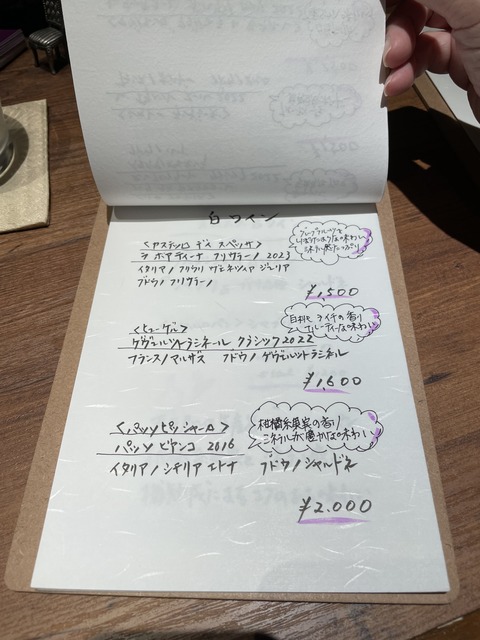 白ワイン
<カステッロ ディ スペッサ>
ラ ボアティーナ フリウラーノ 2023
グレープフルーツを
しぼったような味わい
イタリア/フリウリ ヴェネツィア ジュリア
ブドウ/フリウラーノ
¥1,500
<ヒューゲル>
ゲヴュルツトラミネール クラシック 2022
フランス/アルザス ブドウ/ゲヴュルツトラミネル
白桃とライチの香り
フルーティーな味わい
¥1,600
<パッソピッシャーロ>
パッソ ビアンコ 2016
イタリア/シチリア エトナ ブドウ/シャルドネ
柑橘系果実の香り
ミネラルが豊かな味わい
¥2.000